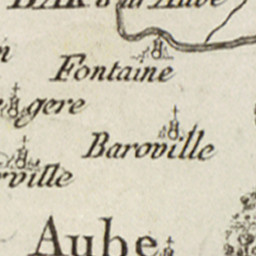 BAR
Aube
Fontaine
gere
Baroville
rville
Aube